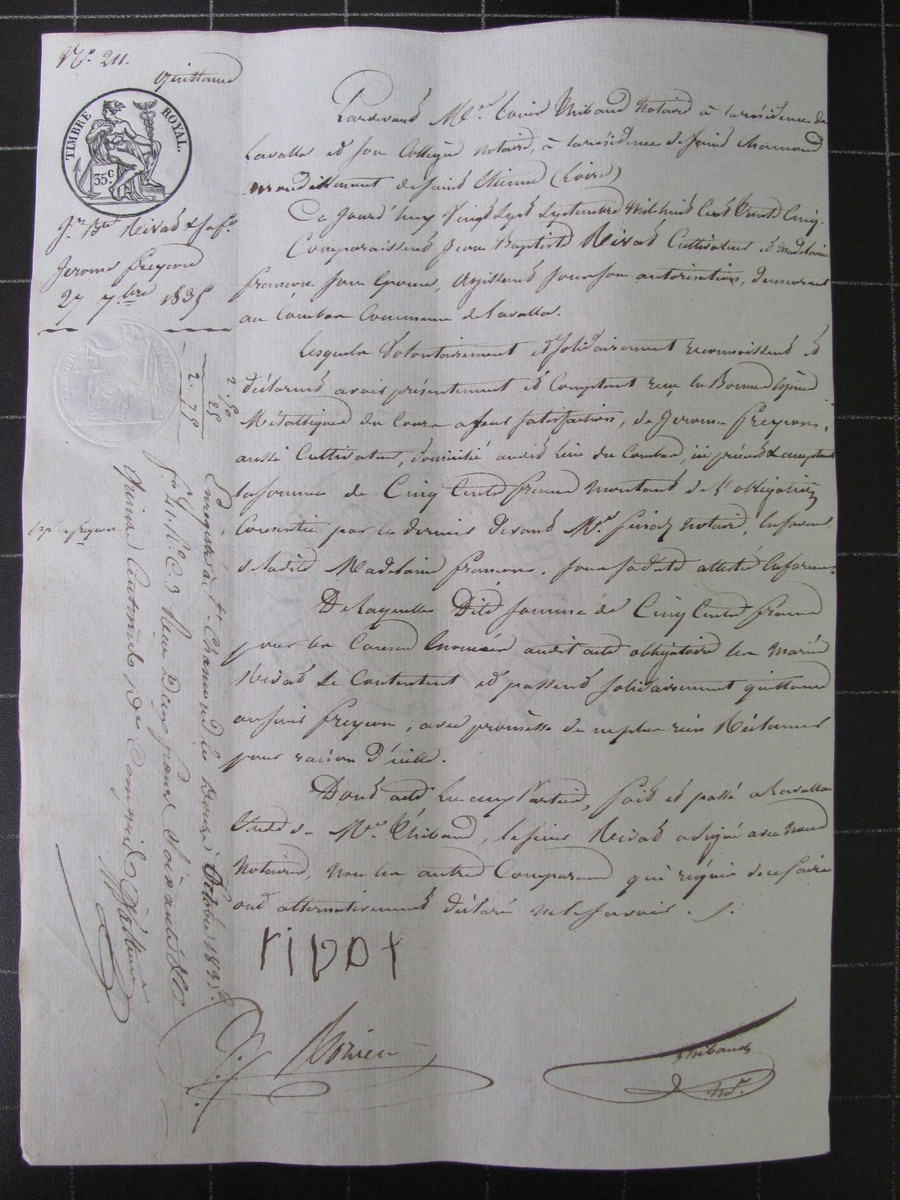 N.° 211.
Quittance
TIMBRE ROYAL.
35c
Jn. Bte Rivat & sa fe.
Jerome freycon
27 7.bre 1835
Pardevant Me. Thibaud Notaire à la résidence de
Lavalla et son Collègue notaire, à la résidence de Saint Chamond
arrondissement de Saint Etienne (Loire)
Ce Jourd'huy Vingt Sept Septembre Mil huit Cent Trente Cinq.
Comparaissent Jean Baptiste Rivat Cultivateur et Madelaine
françon son épouse, agissant sous son autorisation, demeurant
au Combat Commune de Lavalla.
Lesquels Volontairement et solidairement reconnoissent et
déclarent avoir présentement et Comptant reçu en Bonnes espèces
Métallique du Cours a leur satisfaction, de Jerome freycon,
aussi Cultivateur, domicilié audit lieu du Combat, ici présent & acceptant
la somme de Cinq Cents francs montant de l'obligation
Consentie par ce dernier devant Me. finaz Notaire, en faveur
de ladite Madelaine françon, sous sa date attestée en forme.
De laquelle Dite somme de Cinq Cents francs
pour les Causes énoncées audit acte obligatoire les Mariés
Rivat se Contentent et passent solidairement quittance
au sieur freycon, avec promesse de ne plus rien Réclamer
pour raison d'icelle.
Dont acte Lu aux Parties, fait et passé a Lavalla
Etude de Me. Thibaud, le sieur Rivat a signé avec nous
Notaires, Non les autres Comparants qui requis de ce faire
ont alternativement déclaré ne le savoir. /.
rivat
thibaud
Nre.
2. 50
25
2. 75
Enregistré à St. Chamond le Douze Octobre 1835.
fo. 21. R. C. 3 Reçu Deux francs soixante et
quinze Centimes Dme Compris
Exp. a freycon